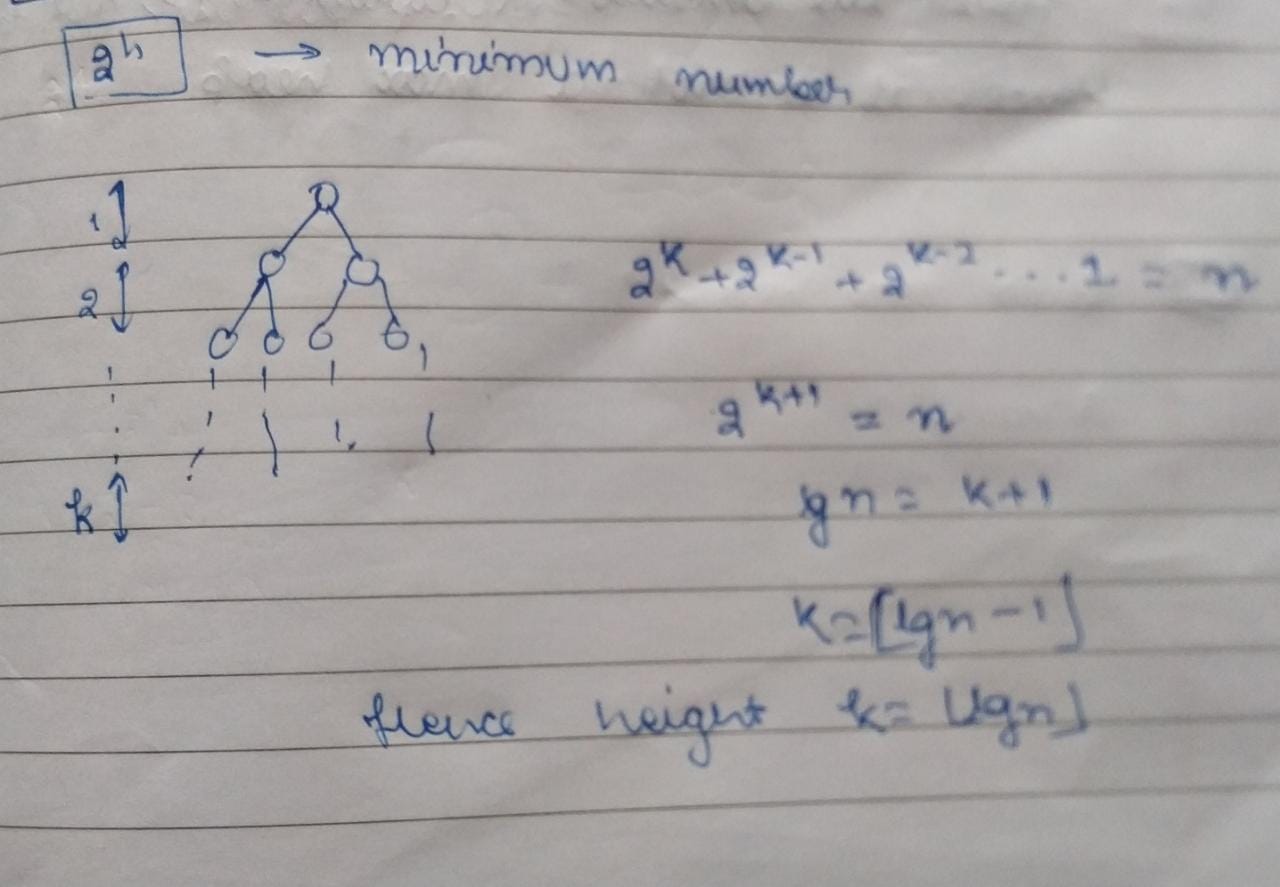 2^h → minimum number
1
2
2^k + 2^{k-1} + 2^{k-2} ... 1 = n
2^{k+1} = n
lg n = k+1
k
k = ⌊lgn - 1⌋
Hence height k = ⌊lgn⌋